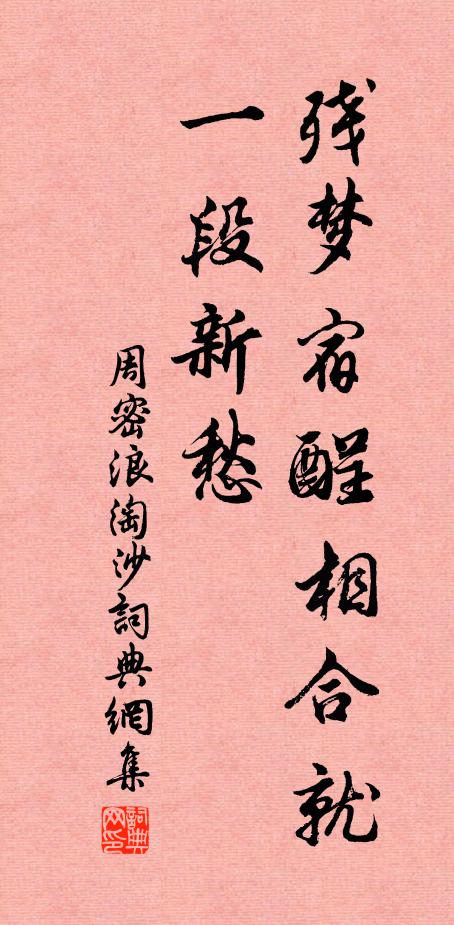 残梦宿酲相合就
一段新愁
周密浪淘沙詞典網集
詞典网印